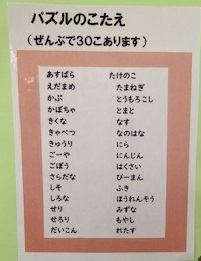 パズルのこたえ
(ぜんぶで30こあります)
あすぱら たけのこ
えだまめ たまねぎ
かぶ とうもろこし
かぼちゃ とまと
きくな なす
きゃべつ なのはな
きゅうり にら
ごーや にんじん
ごぼう はくさい
さらだな ぴーまん
しそ ふき
しろな ほうれんそう
せり みずな
せろり もやし
だいこん れたす